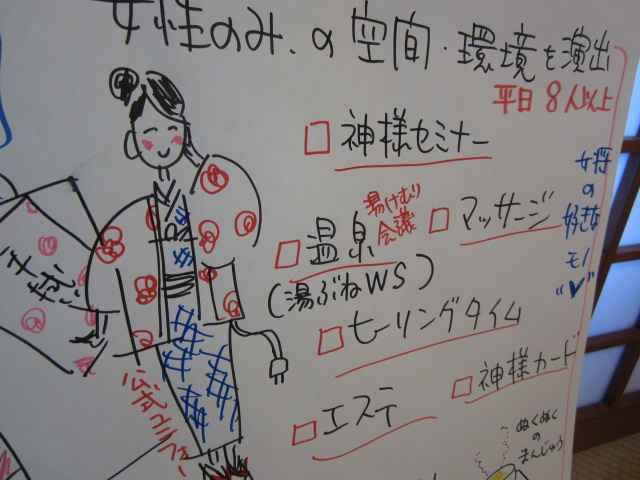 女性のみ、の空間・環境を演出
平日 8人以上
□ 神様セミナー
□ マッサージ
□ 温泉
湯けむり
会議
(湯ぶねWS)
□ ヒーリングタイム
□ エステ
□ 神様カード
女将
の
好きな
モノ
ぬくぬく
の
まんじゅう
公式ユニフォー